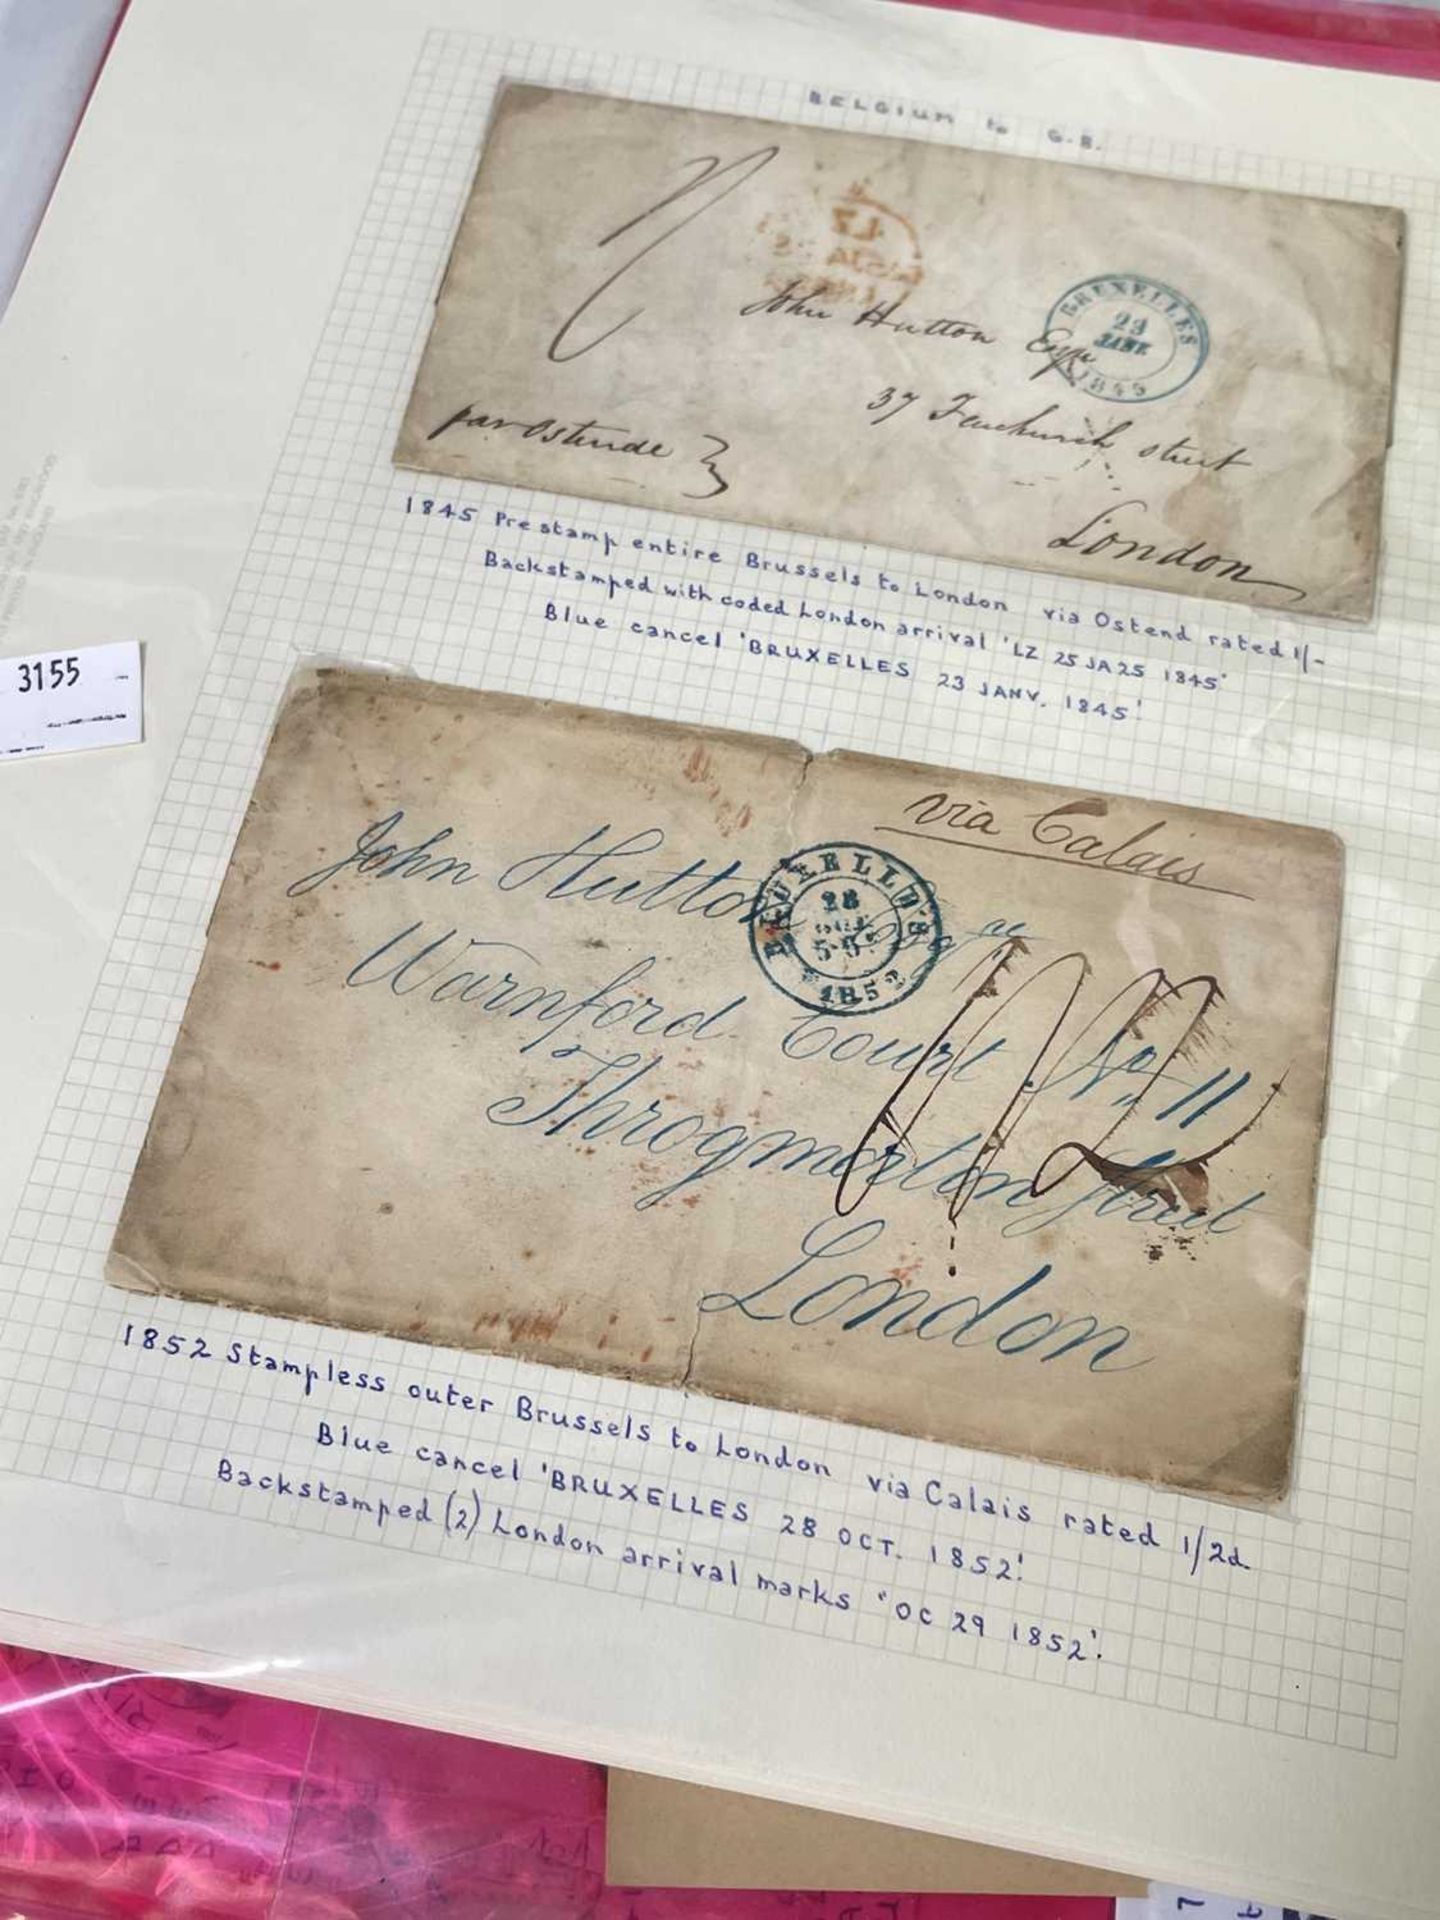 BELGIUM to G.B.
BRUXELLES
23
JANV
1845
John Hutton Esqr
37 Fenchurch street
par Ostende
London
1845 Prestamp entire Brussels to London via Ostend rated 1/-
Backstamped with coded London arrival 'LZ 25 JA 25 1845'
Blue cancel 'BRUXELLES 23 JANV. 1845'.
3155
via Calais
BRUXELLES
28
1852
John Hutton Esqre
Warnford Court No. 11
Throgmorton Street
London
1852 Stampless outer Brussels to London via Calais rated 1/2d
Blue cancel 'BRUXELLES 28 OCT. 1852'.
Backstamped (2) London arrival marks 'OC 29 1852'.